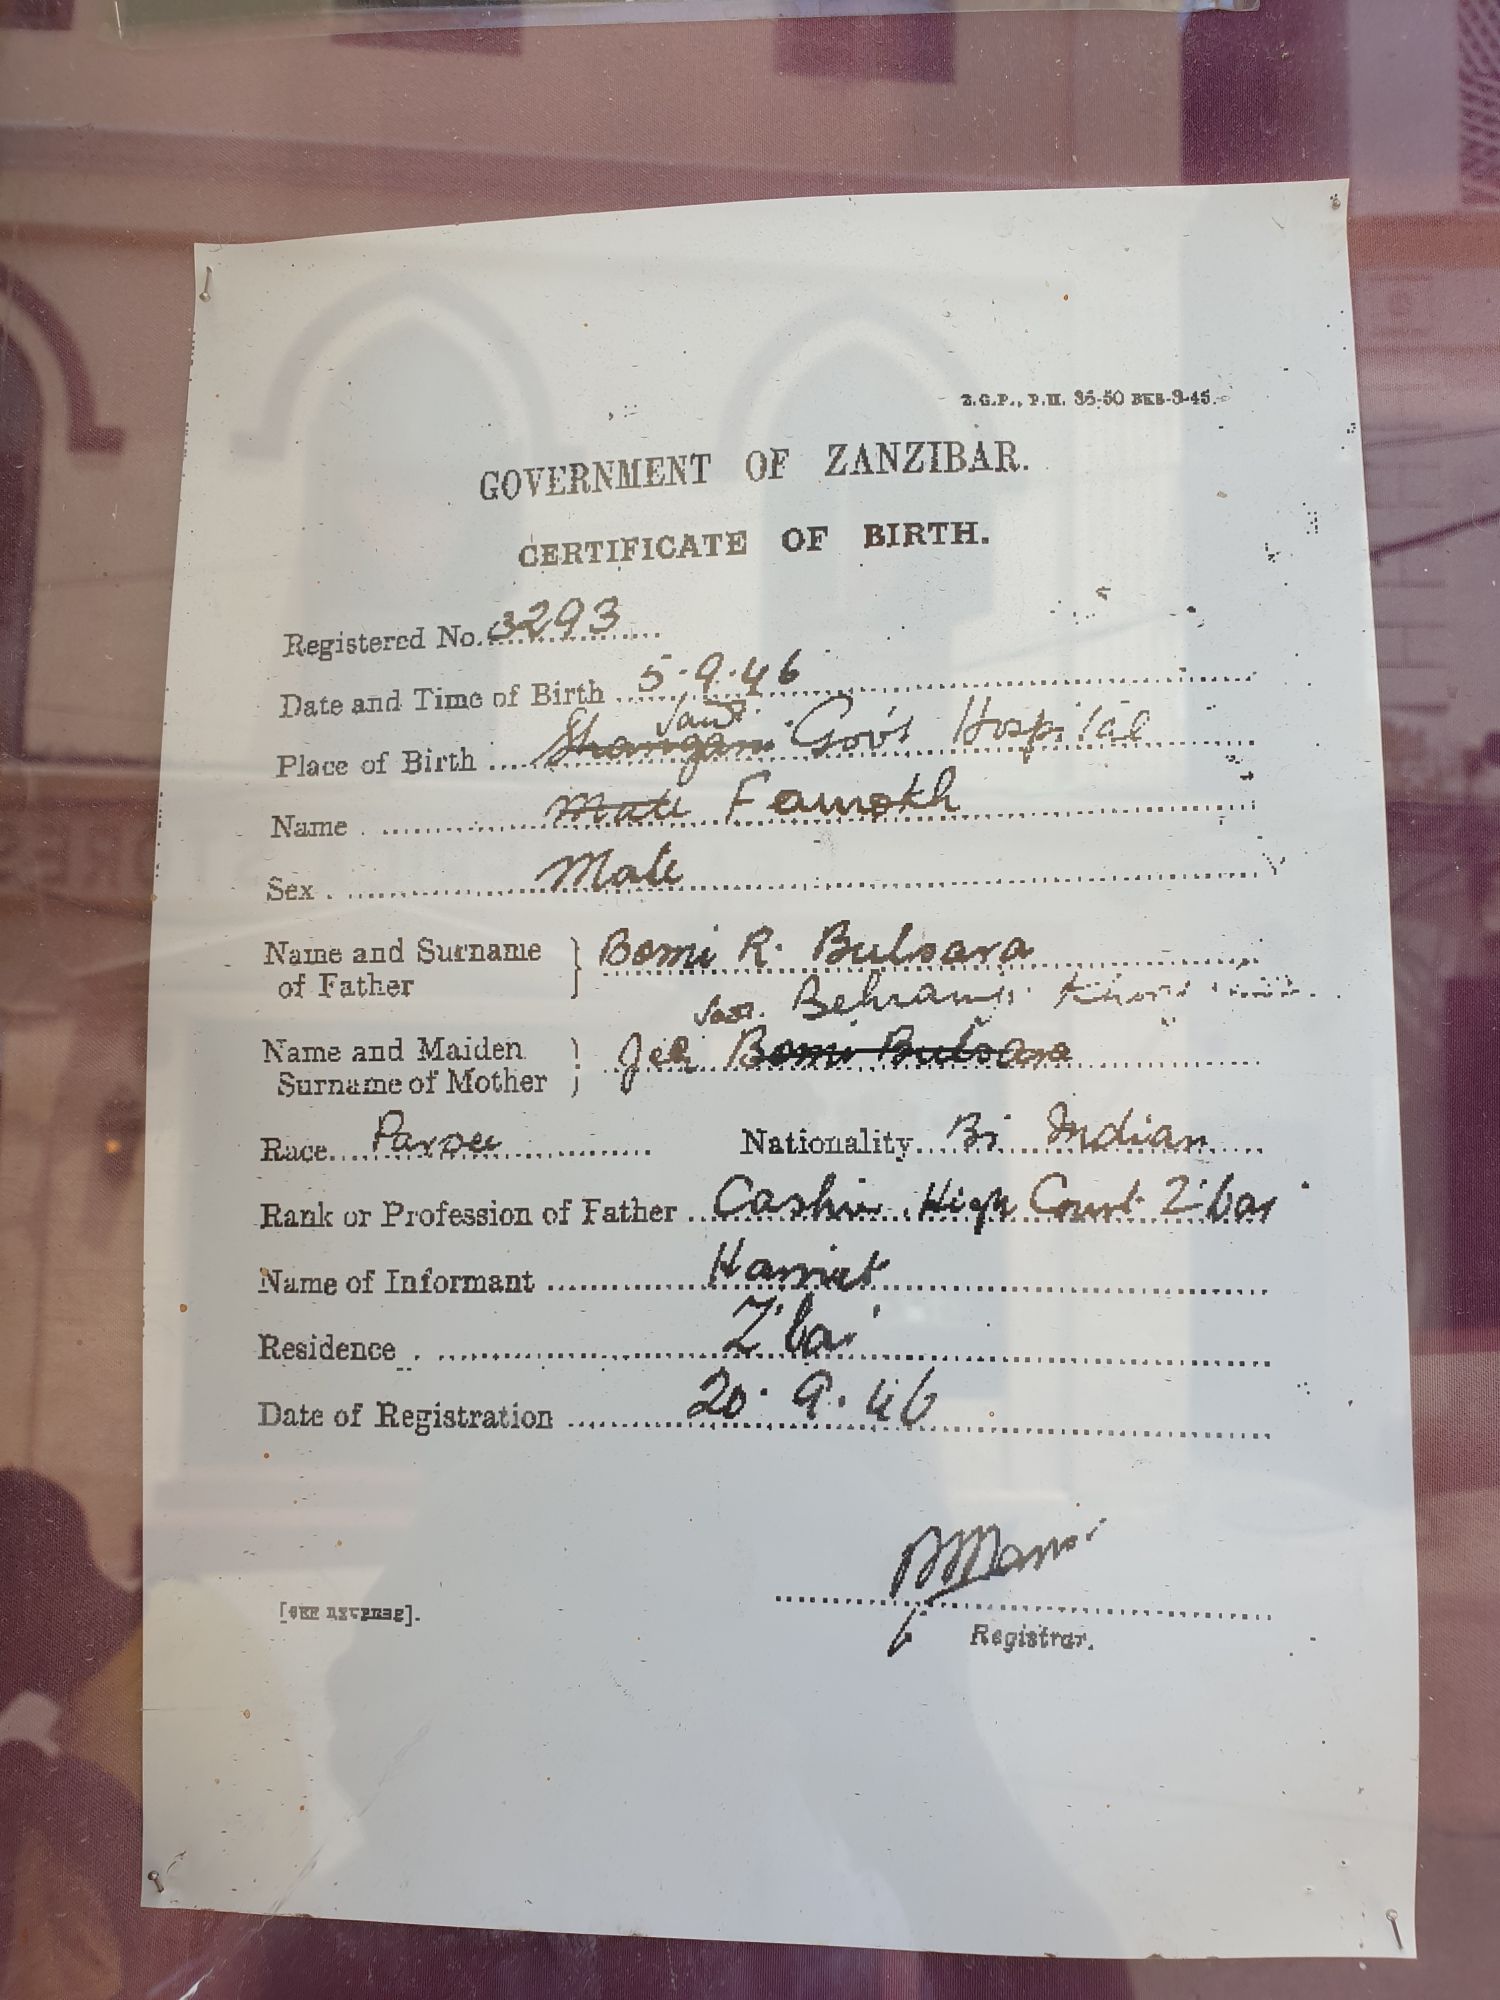 Z.G.P., P.H. 36-50 BKS-3-45.
GOVERNMENT OF ZANZIBAR.
CERTIFICATE OF BIRTH.
Registered No. 3293
Date and Time of Birth 5.9.46
Place of Birth Shangani Gov't Hospital
Name Male Farrokh
Sex Male
Name and Surname of Father Bomi R. Bulsara
Behramji
Name and Maiden Surname of Mother Jer Bomi Bulsara
Race Parsee Nationality Br Indian
Rank or Profession of Father Cashier High Court Z'bar
Name of Informant Harriet
Residence Z'bar
Date of Registration 20.9.46
[SEE REVERSE].
Registrar.